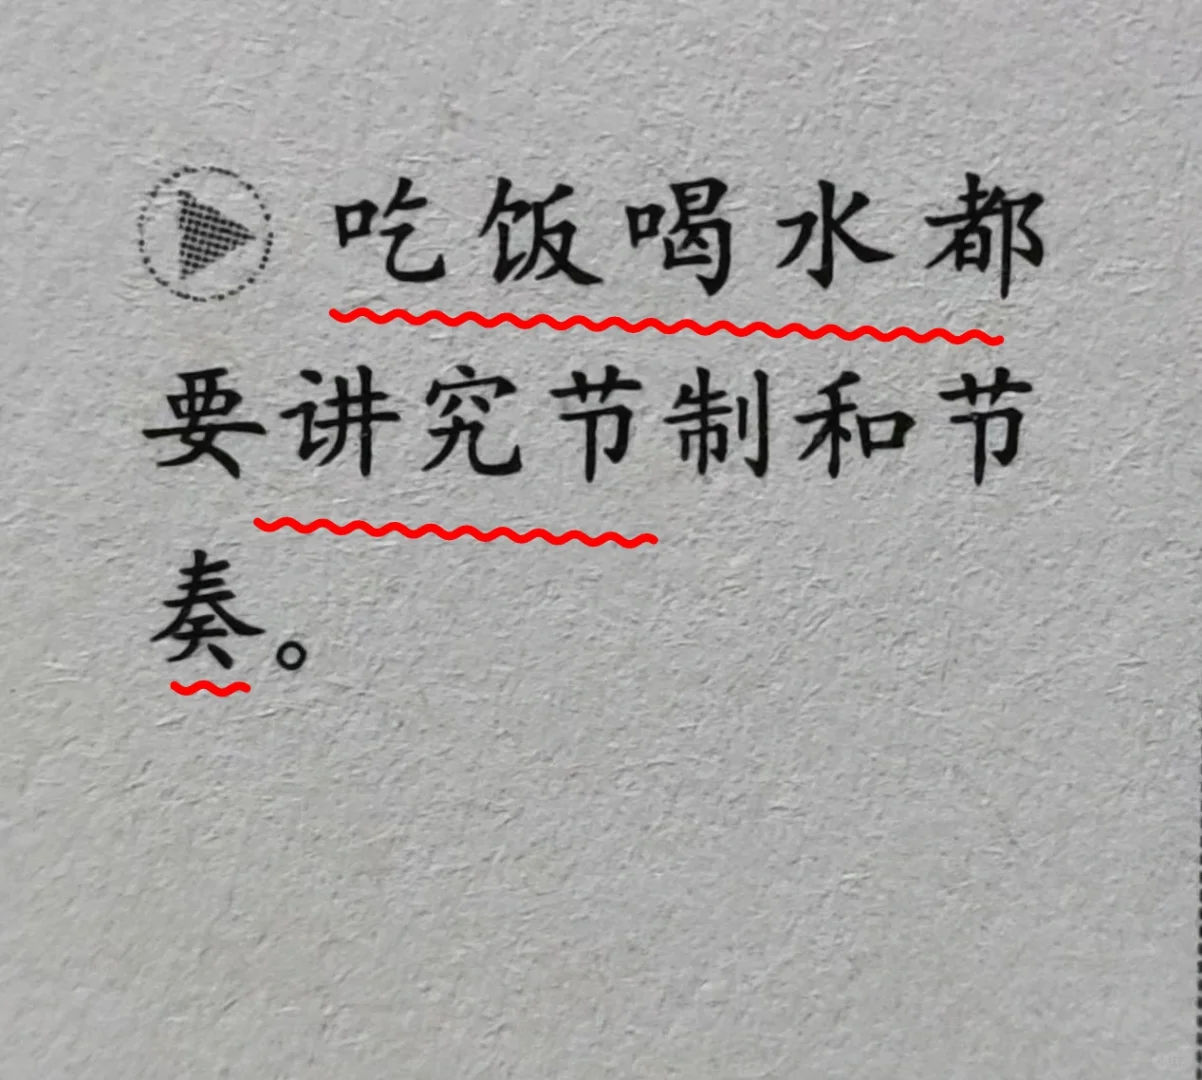 吃饭喝水都
要讲究节制和节
奏。